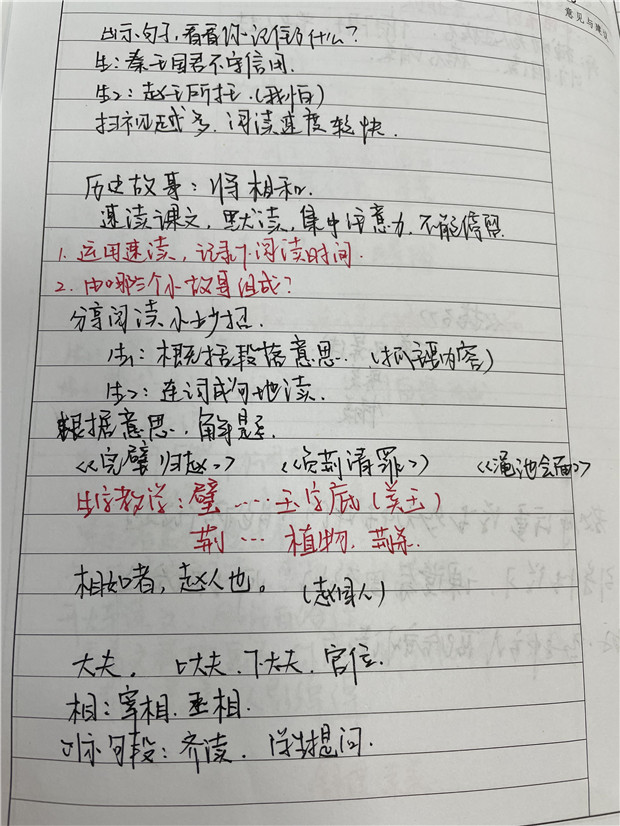 意见与建议
出示句子，看看你记住了什么？
生1：秦王因君不守信用.
生2：赵王所托.（我怕）
扫视越多，阅读速度较快.
历史故事：将相和.
速读课文，默读，集中注意力，不能停留
1. 运用速读，记录下阅读时间.
2. 由哪三个小故事组成？
分享阅读小妙招.
生1：概括段落意思.（抓主要内容）
生2：连词成句地读.
根据意思，解题.
《完璧归赵》 《负荆请罪》 《渑池会面》
生字教学：璧……玉字底（美玉）
荆… 植物，荆条.
相如者，赵人也。（赵国人）
大夫. 上大夫.下大夫.官位.
相：宰相.丞相.
出示句段：齐读. 学生提问.